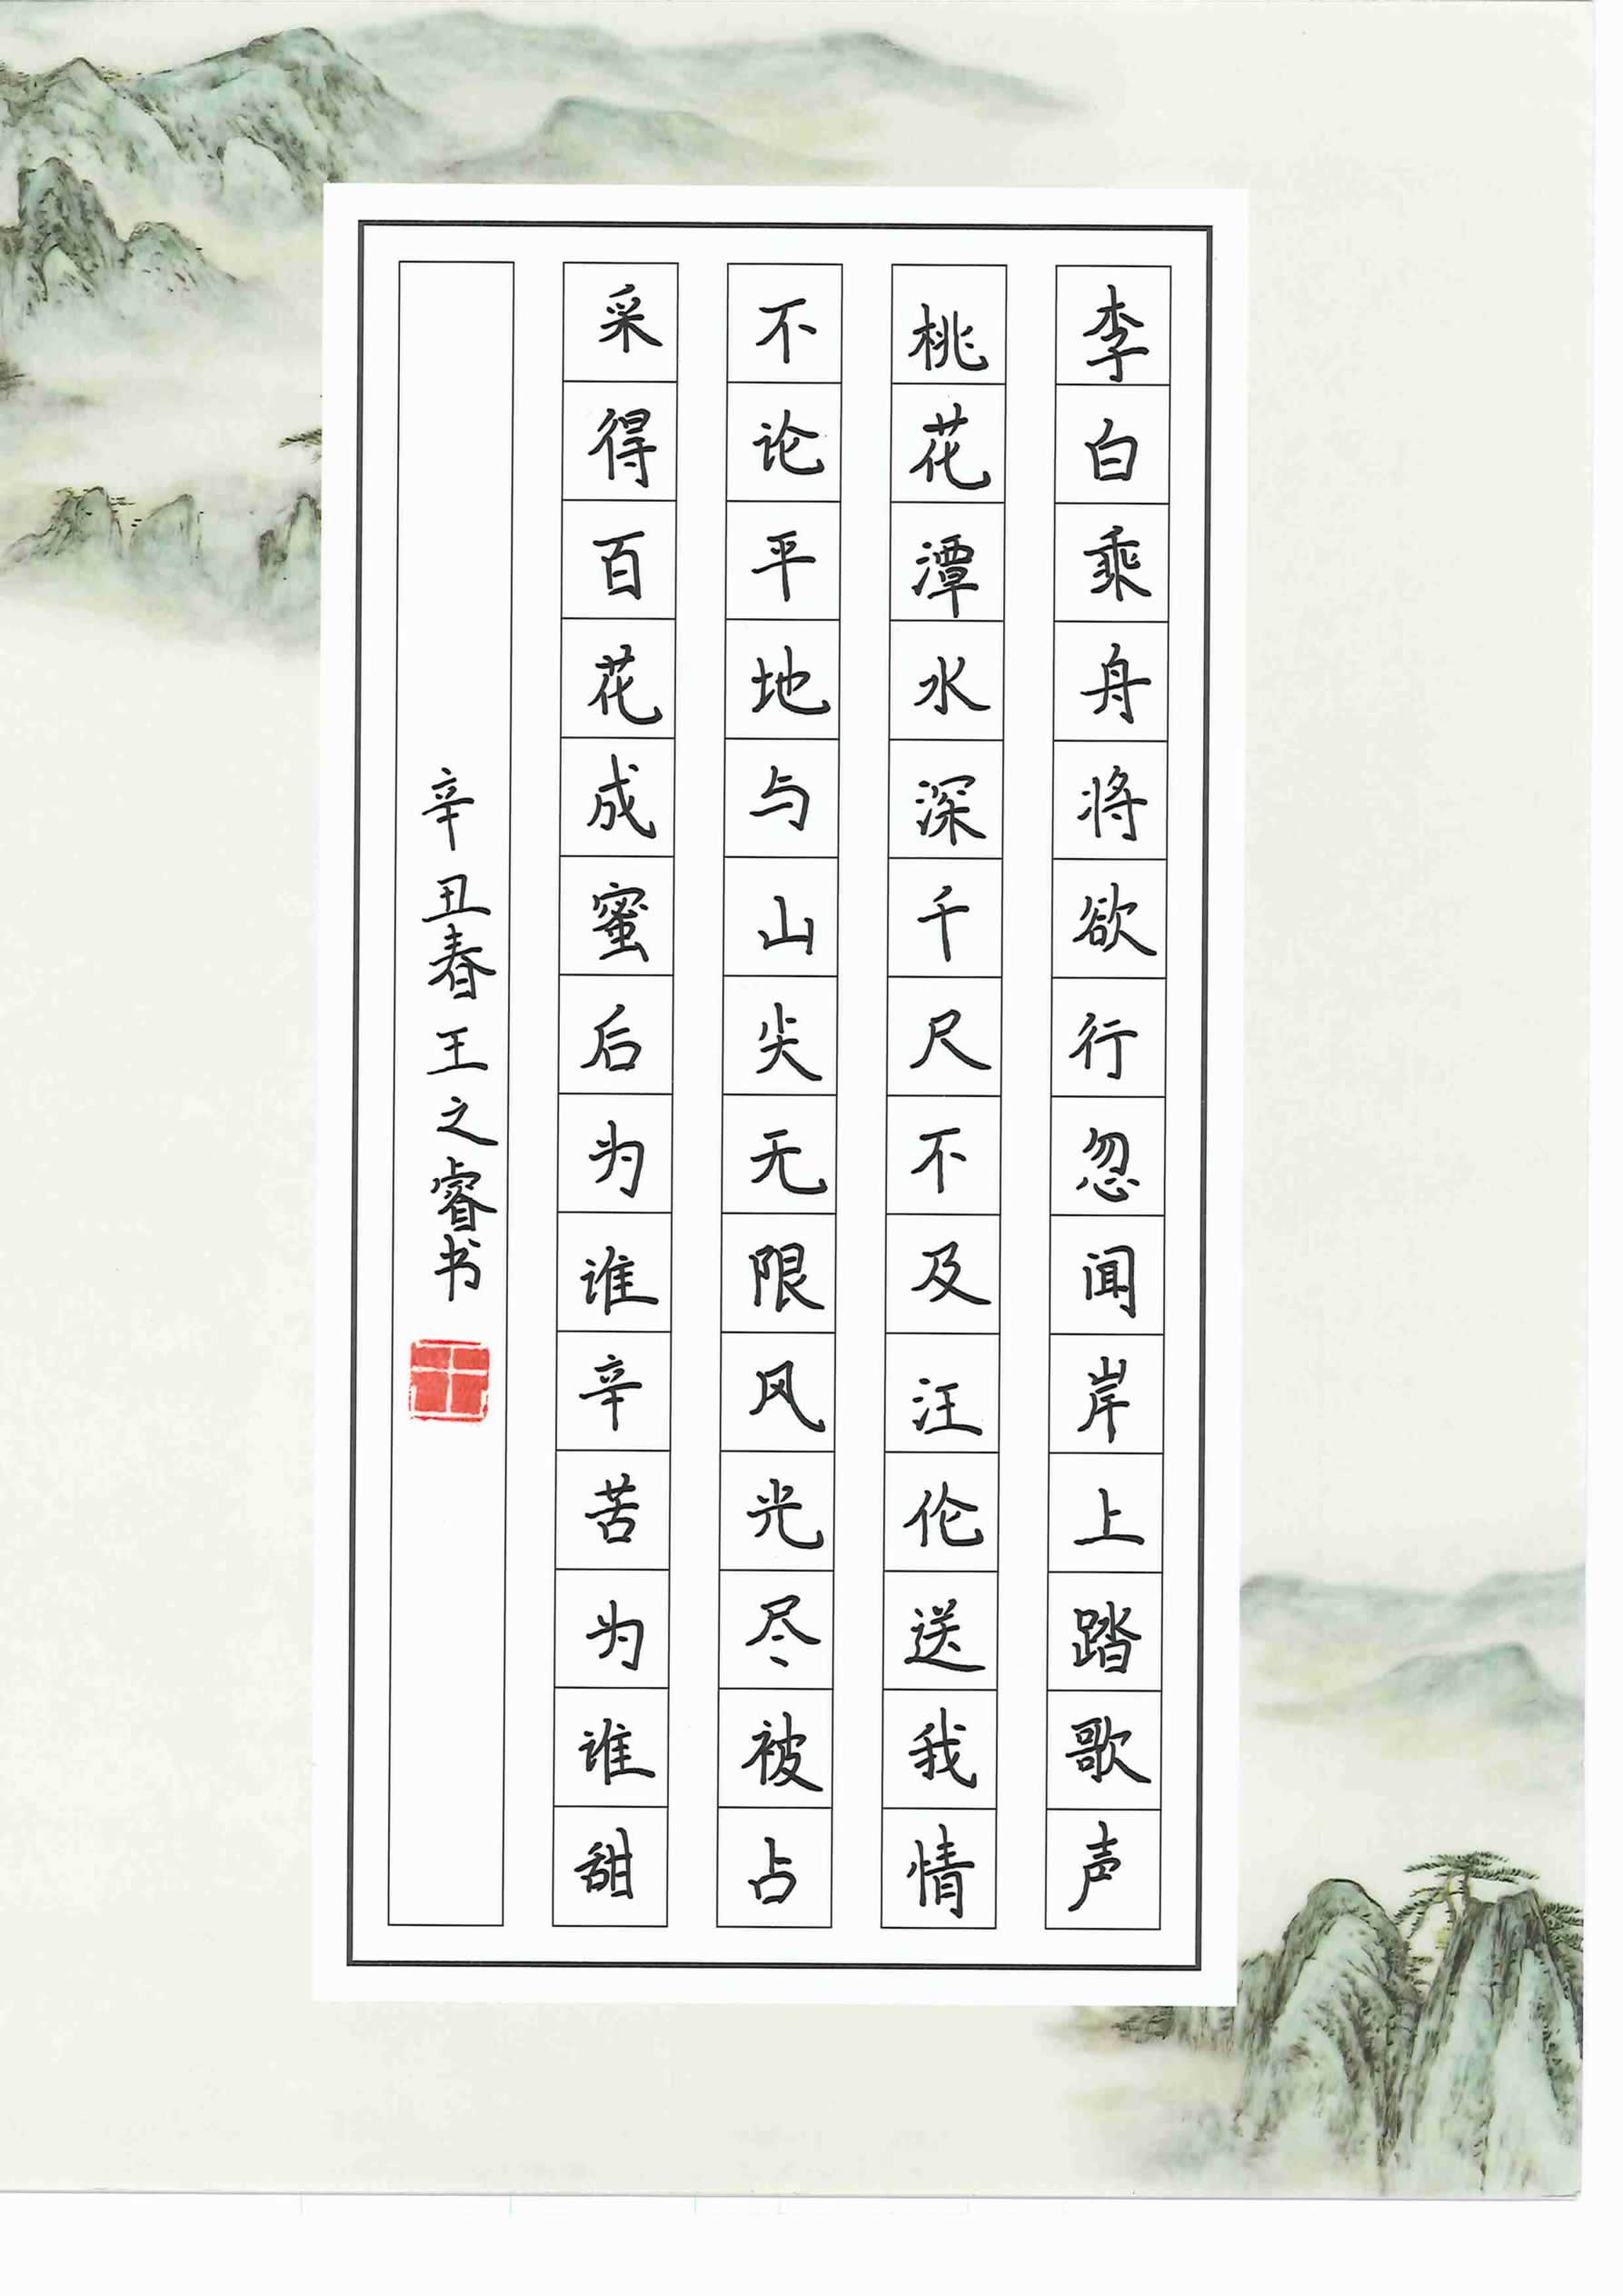 李白乘舟将欲行忽闻岸上踏歌声
桃花潭水深千尺不及汪伦送我情
不论平地与山尖无限风光尽被占
采得百花成蜜后为谁辛苦为谁甜
辛丑春王之睿书